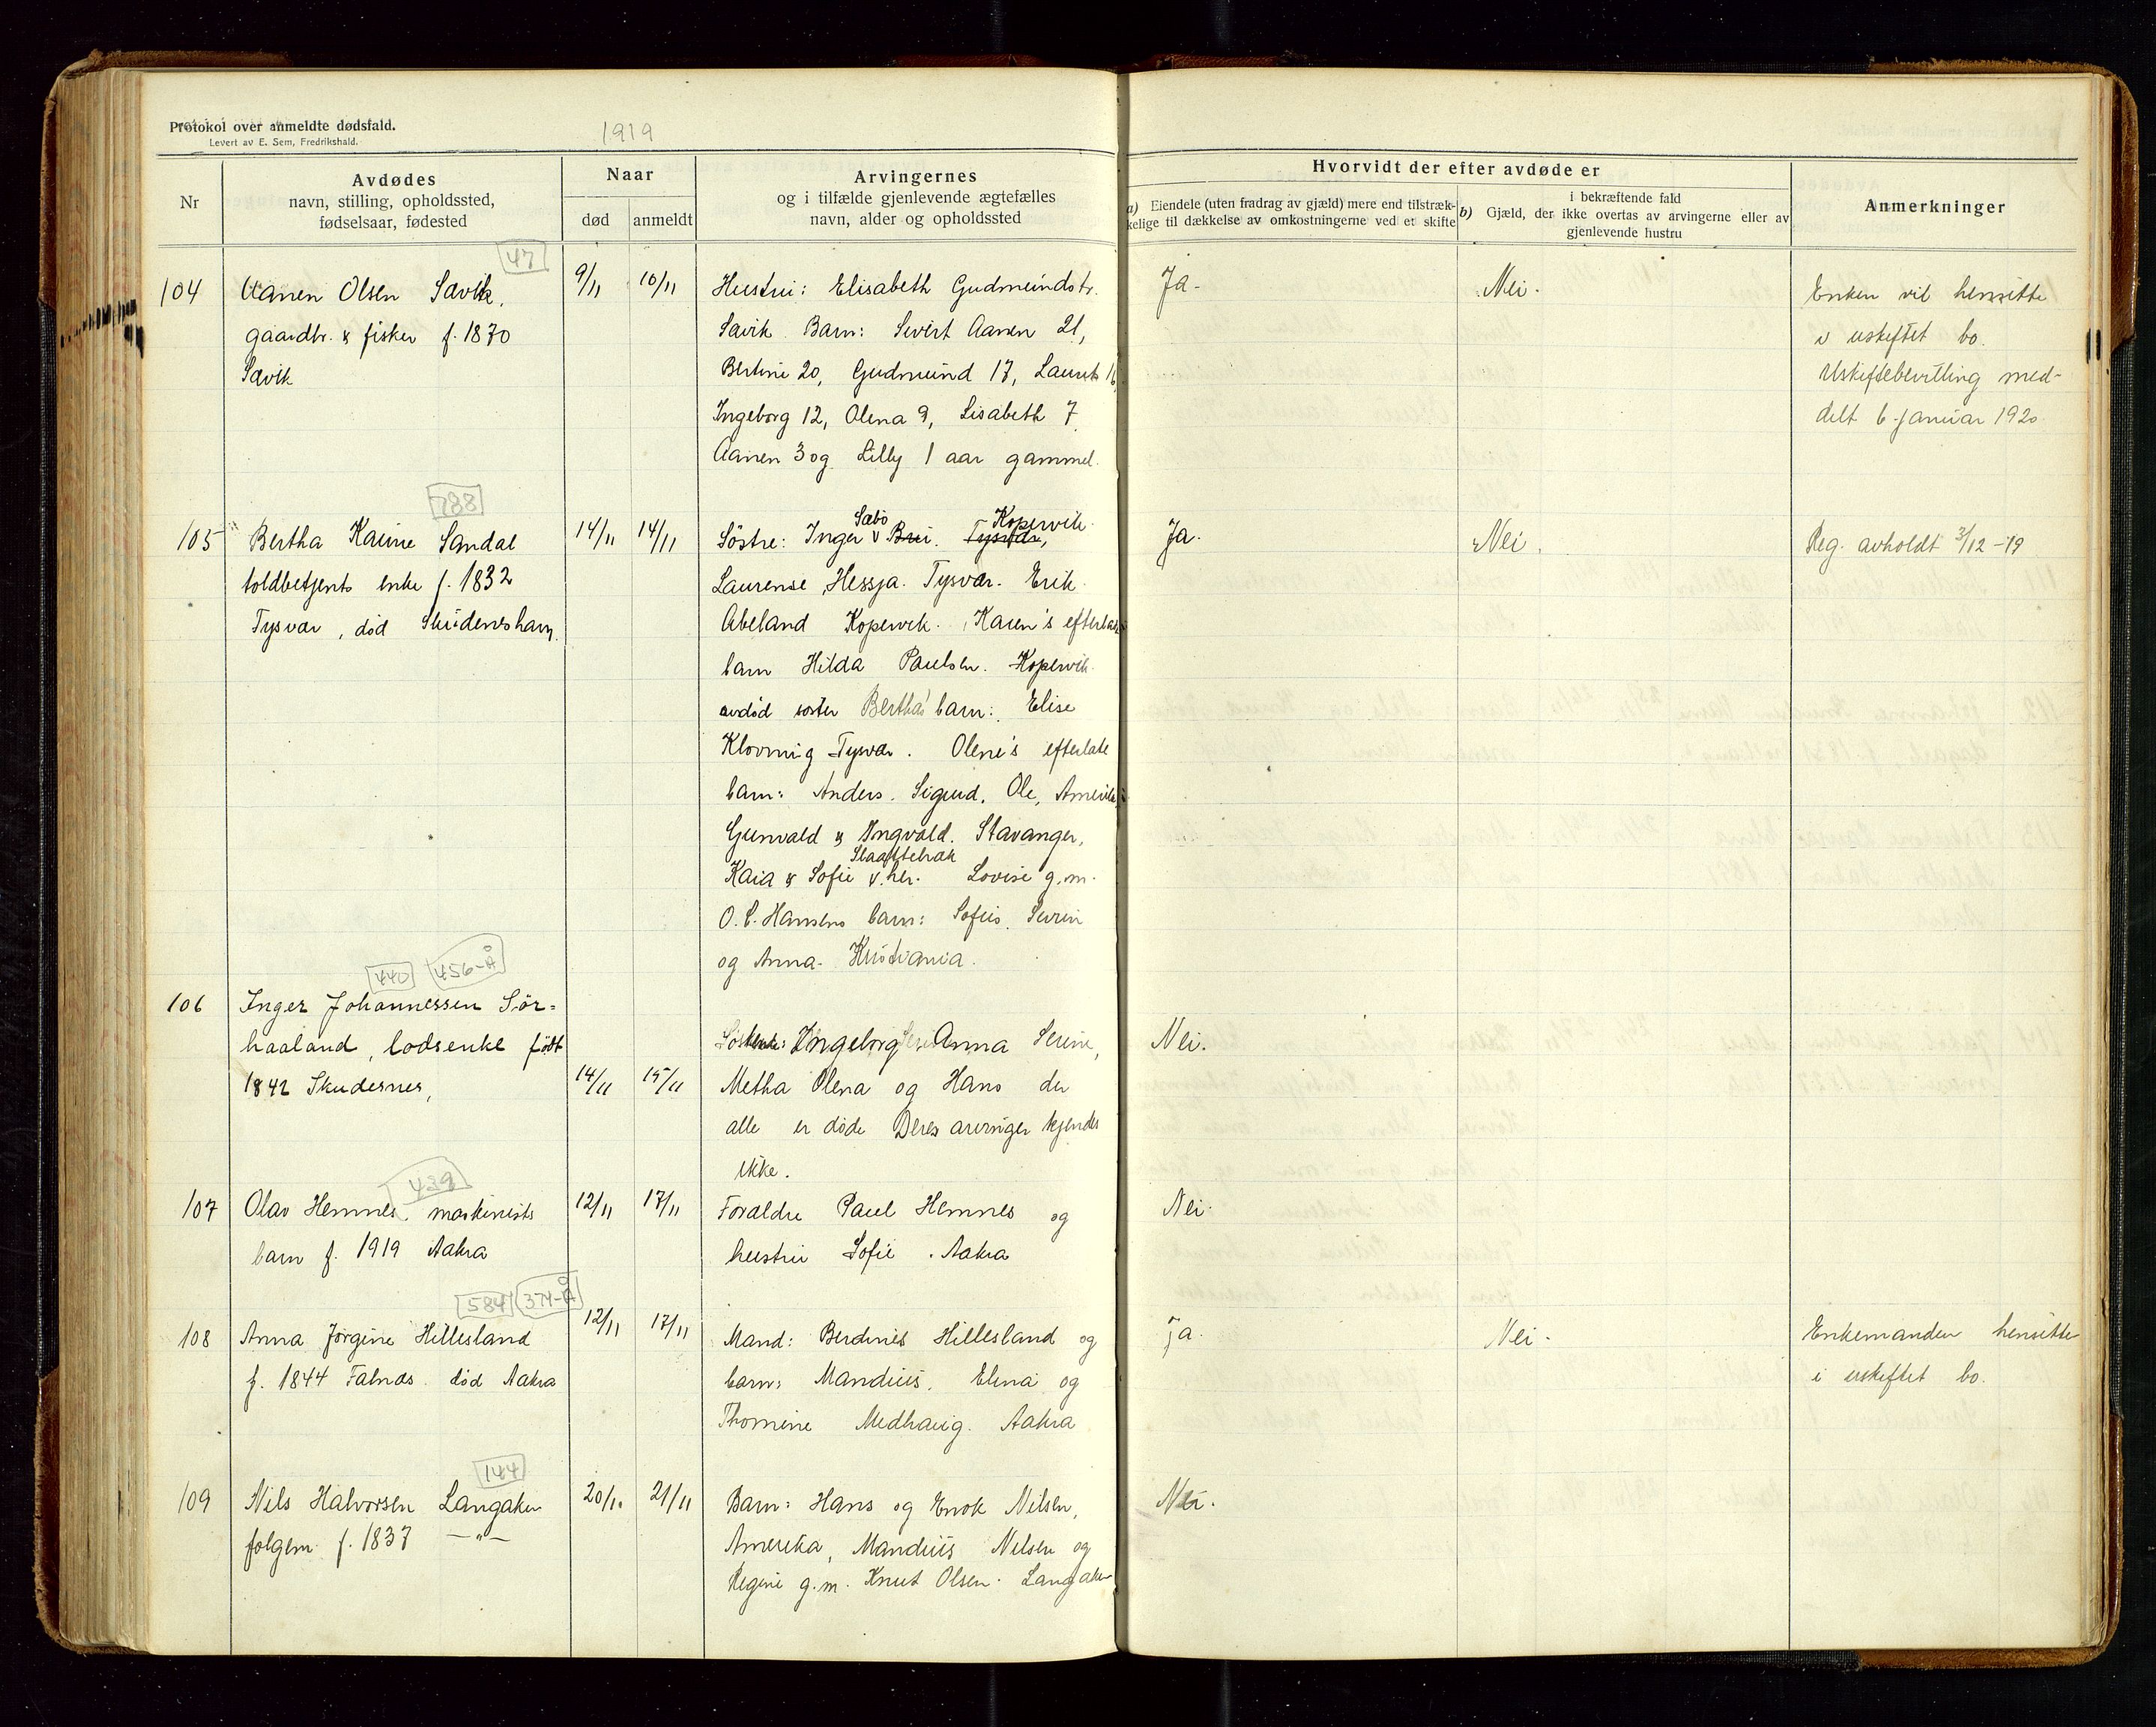 Protokol over anmeldte dødsfald.
Levert av E. Sem, Fredrikshald.
1919
Nr
Avdødes
navn, stilling, opholdssted,
fødselsaar, fødested
Naar
død
anmeldt
Arvingernes
og i tilfælde gjenlevende ægtefælles
navn, alder og opholdssted
Hvorvidt der efter avdøde er
a) Eiendele (uten fradrag av gjæld) mere end tilstræk-
kelige til dækkelse av omkostningerne ved et skifte
i bekræftende fald
b) Gjæld, der ikke overtas av arvingerne eller av
gjenlevende hustru
Anmerkninger
47
104
Aanen Olsen Sævik,
gaardbr. & fisker f. 1870
Sævik
9/11
10/11
Hustru: Elisabeth Gudmundstr.
Sævik. Barn: Sivert Aanen 21,
Bertine 20, Gudmund 17, Laurits 16
Ingeborg 12, Olena 9, Lisabeth 7
Aanen 3 og Lilly 1 aar gammel.
Ja.
Nei.
Enken vil hensitte
i uskiftet bo.
Uskiftebevilling med-
delt 6 januar 1920
788
105
Bertha Karine Sandal
toldbetjents enke f. 1832
Tysvær, død Skudeneshavn.
14/11
14/11
Sæbø Kopervik.
Söstre: Inger v Tysvær,
Laurense Hessja. Tysvær. Erik
Abeland Kopervik. Karen's efterlatte
barn Hilda Paulsen. Kopervik
avdød søster Bertha's barn: Elise
Klovning Tysvær. Olene's efterlate
barn: Anders. Sigurd. Ole, Amerika
Gunvald & Ingvald. Stavanger,
Slaattebrak
Kaia & Sofie v. her. Lovise g.m.
O. C. Hansens barn: Sofus. Severin
og Anna. Kristiania.
Ja.
Nei.
Reg. avholdt 3/12-19
440
456-Å
106
Inger Johannessen Sör=
haaland, lodsenke født
1842 Skudesnes,
14/11
15/11
Søskende: Ingeborg Anna Serine,
Metha Olena og Hans der
alle er døde Deres arvinger kjendes
ikke.
Nei.
439
107
Olav Hemnes, maskinists
barn f. 1919 Aakra
12/11
17/11
Forældre Paul Hemnes og
hustru Sofie. Aakra
Nei.
584
374-Å
108
Anna Jørgine Hillesland
f. 1844 Falnæs. død Aakra
12/11
17/11
Mand: Berdines Hillesland og
barn: Mandius. Elena og
Thomine Medhaug. Aakra
Ja.
Nei.
Enkemanden hensitter
i uskiftet bo.
144
109
Nils Halvorsen Langaker
folgem f. 1837 —"—
20/10
21/11
Barn: Hans og Enok Nilsen,
Amerika, Mandius Nilsen og
Regine g.m. Knut Olsen. Langaker
Nei.